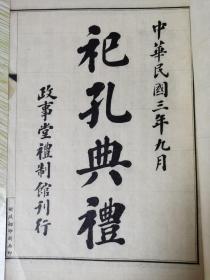 中華民國三年九月
祀孔典禮
政事堂禮制館刊行